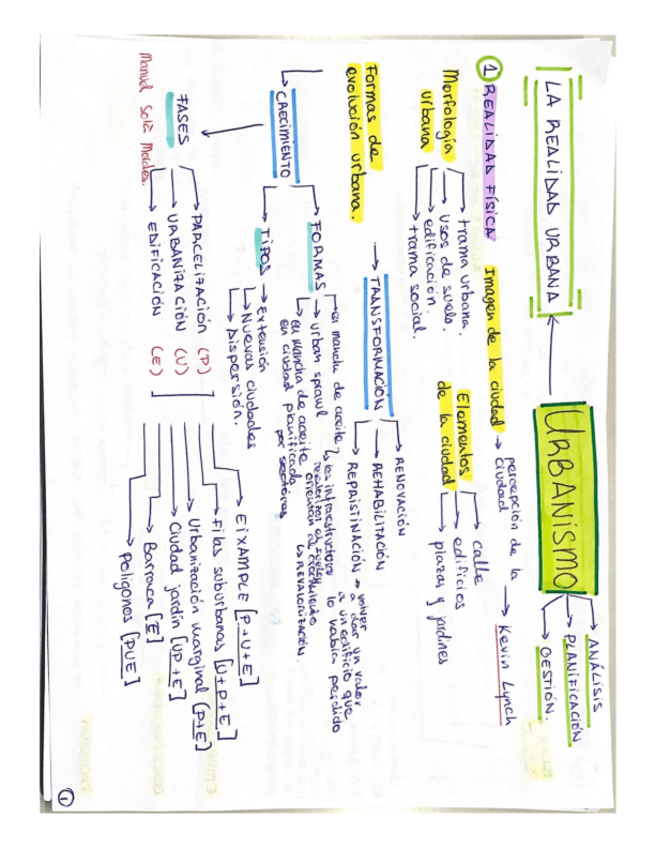 URBANISMO
ANÁLISIS
PLANIFICACIÓN
GESTIÓN.
LA REALIDAD URBANA
① REALIDAD FÍSICA
Imagen de la ciudad → percepción de la
ciudad
→ Kevin Lynch
Morfología
urbana
trama urbana.
usos de suelo.
edificación.
trama social.
Elementos
de la ciudad
calle
edificios
plazas y jardines
Formas de
evolución urbana.
TRANSFORMACIÓN
RENOVACIÓN
REHABILITACIÓN
REPRISTINACIÓN → volver
a dar un valor
a un edificio que
lo había perdido
CRECIMIENTO
FORMAS
en mancha de aceite
urban sprawl
en mancha de aceite
en ciudad planificada
por sectores
las infraestructuras
orientan el crecimiento
↳ REVALORIZACIÓN.
TIPOS → Extensión
Nuevas ciudades
Dispersión.
FASES
Manuel Solà Morales.
PARCELIZACIÓN (P)
URBANIZACIÓN (U)
EDIFICACIÓN (E)
EIXAMPLE [P+U+E]
Filas suburbanas [U+P+E]
Urbanización marginal [P+E]
Ciudad jardín [UP+E]
Barraca [E]
Polígonos [PUE]
①